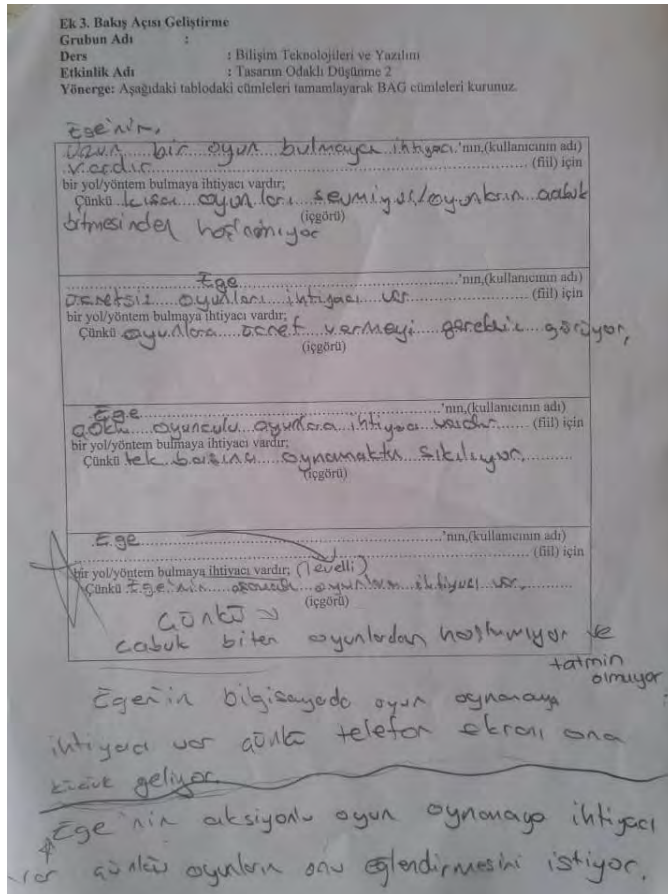 Ek 3. Bakış Açısı Geliştirme
Grubun Adı :
Ders : Bilişim Teknolojileri ve Yazılım
Etkinlik Adı : Tasarım Odaklı Düşünme 2
Yönerge: Aşağıdaki tablodaki cümleleri tamamlayarak BAG cümleleri kurunuz.
Ege'nin,
uzun bir oyun bulmaya ihtiyacı 'nın,(kullanıcının adı)
vardır (fiil) için
bir yol/yöntem bulmaya ihtiyacı vardır;
Çünkü kısa oyunları sevmiyor/oyunların çabuk
(içgörü)
bitmesinden hoşlanmıyor
Ege 'nın,(kullanıcının adı)
ücretsiz oyunları ihtiyacı var (fiil) için
bir yol/yöntem bulmaya ihtiyacı vardır;
Çünkü oyunlara ücret vermeyi gereksiz görüyor,
(içgörü)
Ege 'nın,(kullanıcının adı)
çoklu oyunculu oyunlara ihtiyacı vardır (fiil) için
bir yol/yöntem bulmaya ihtiyacı vardır;
Çünkü tek başına oynamaktan sıkılıyor,
(içgörü)
Ege 'nın,(kullanıcının adı)
(fiil) için
bir yol/yöntem bulmaya ihtiyacı vardır; (levelli)
Çünkü Ege'nin oyunlara ihtiyacı var,
(içgörü)
Çünkü
çabuk biten oyunlardan hoşlanmıyor ve
tatmin
olmuyor
Ege'nin bilgisayarda oyun oynamaya
ihtiyacı var çünkü telefon ekranı ona
küçük geliyor.
Ege'nin aksiyonlu oyun oynamaya ihtiyacı
var çünkü oyunların onu eğlendirmesini istiyor.